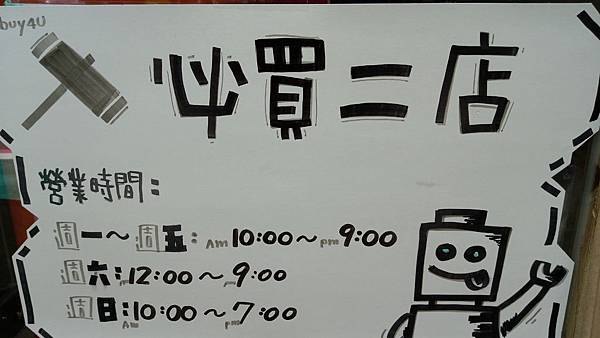 buy4U
必買二店
營業時間：
週一～週五：Am 10:00～pm 9:00
週六：pm 12:00～pm 9:00
週日：Am 10:00～pm 7:00